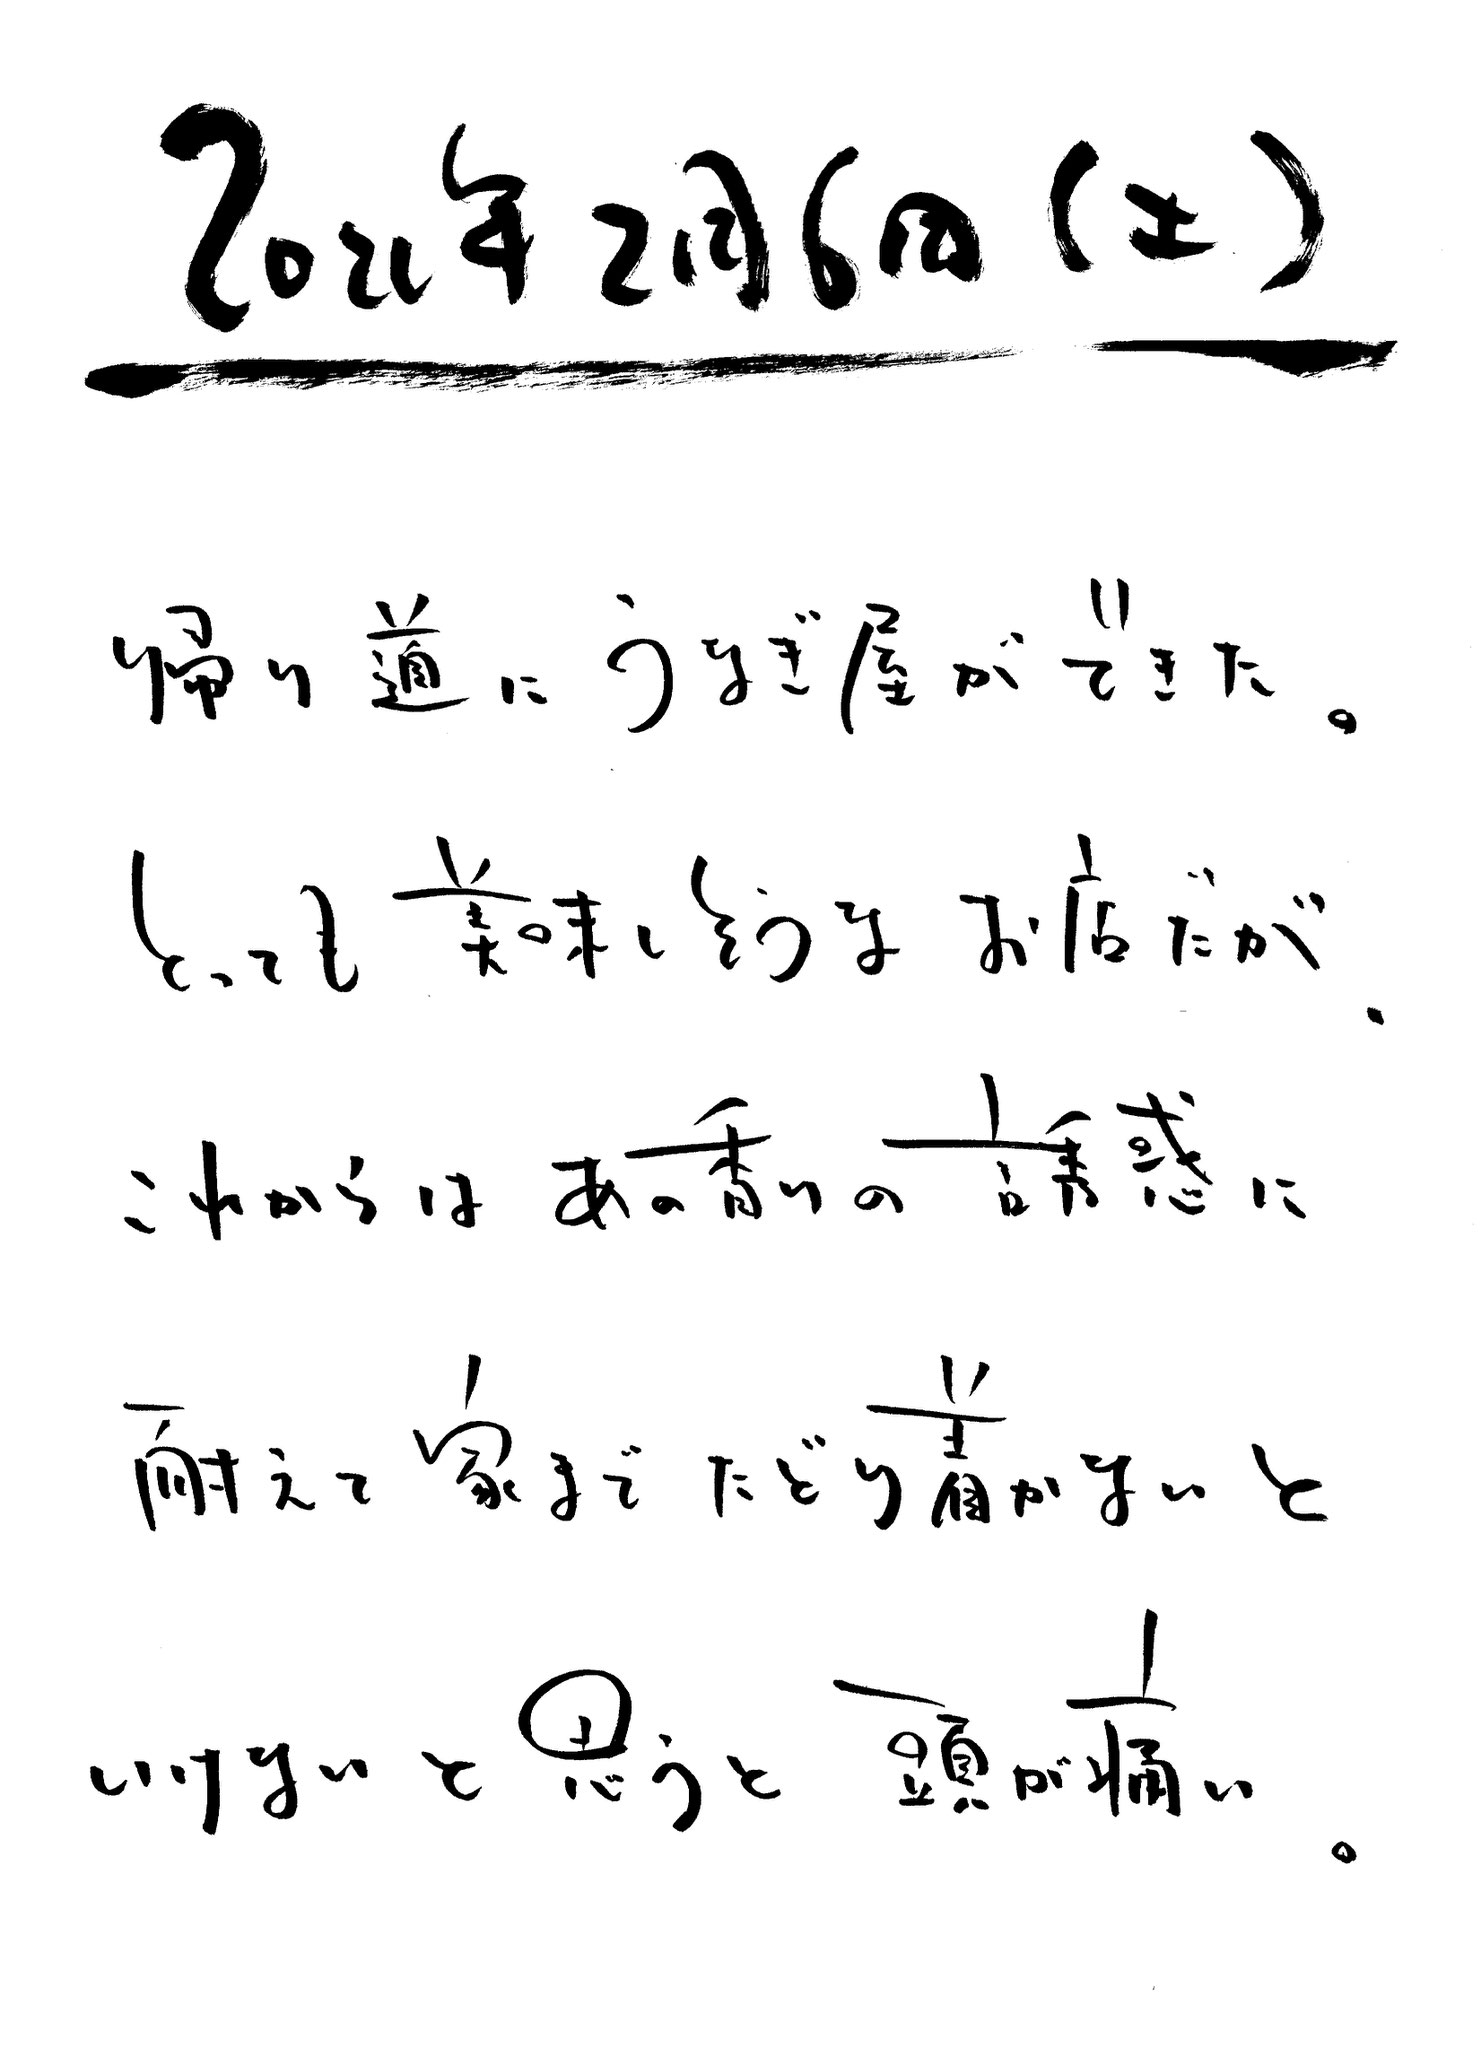 2021年2月6日(土)
帰り道にうなぎ屋ができた。
とっても美味しそうなお店だが、
これからはあの香りの誘惑に
耐えて家までたどり着かないと
いけないと思うと頭が痛い。